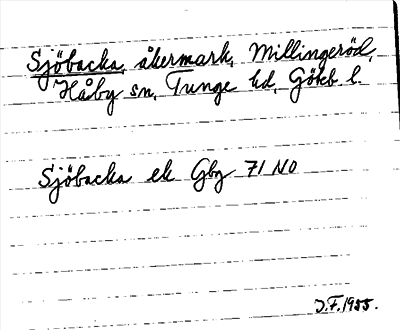 Sjöbacka, åkermark, Millingeröd,
Håby sn, Tunge hd, Göteb. l.
Sjöbacka ek Gbg 71 NO
J.F. 1955.